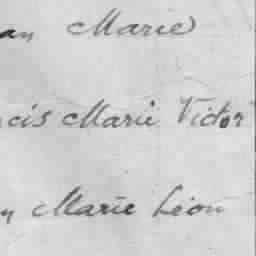 an Marie
cis Marie Victor
n Marie Léon